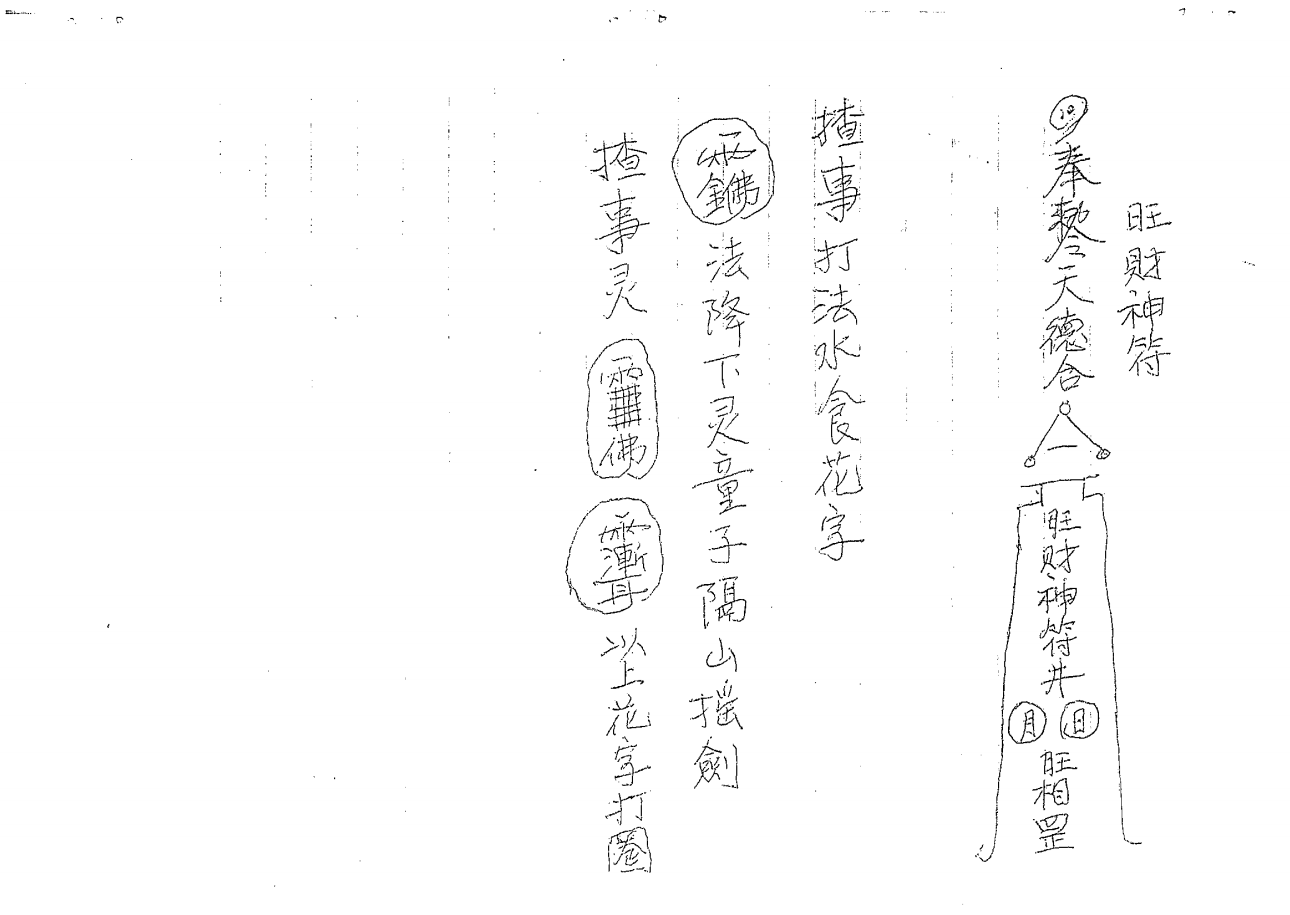 旺財神符
奉 天德合
一
旺財神符井
日 月
旺相罡
揸事打法水食花字
法降下灵童子隔山摇劍
揸事灵 以上花字打圈